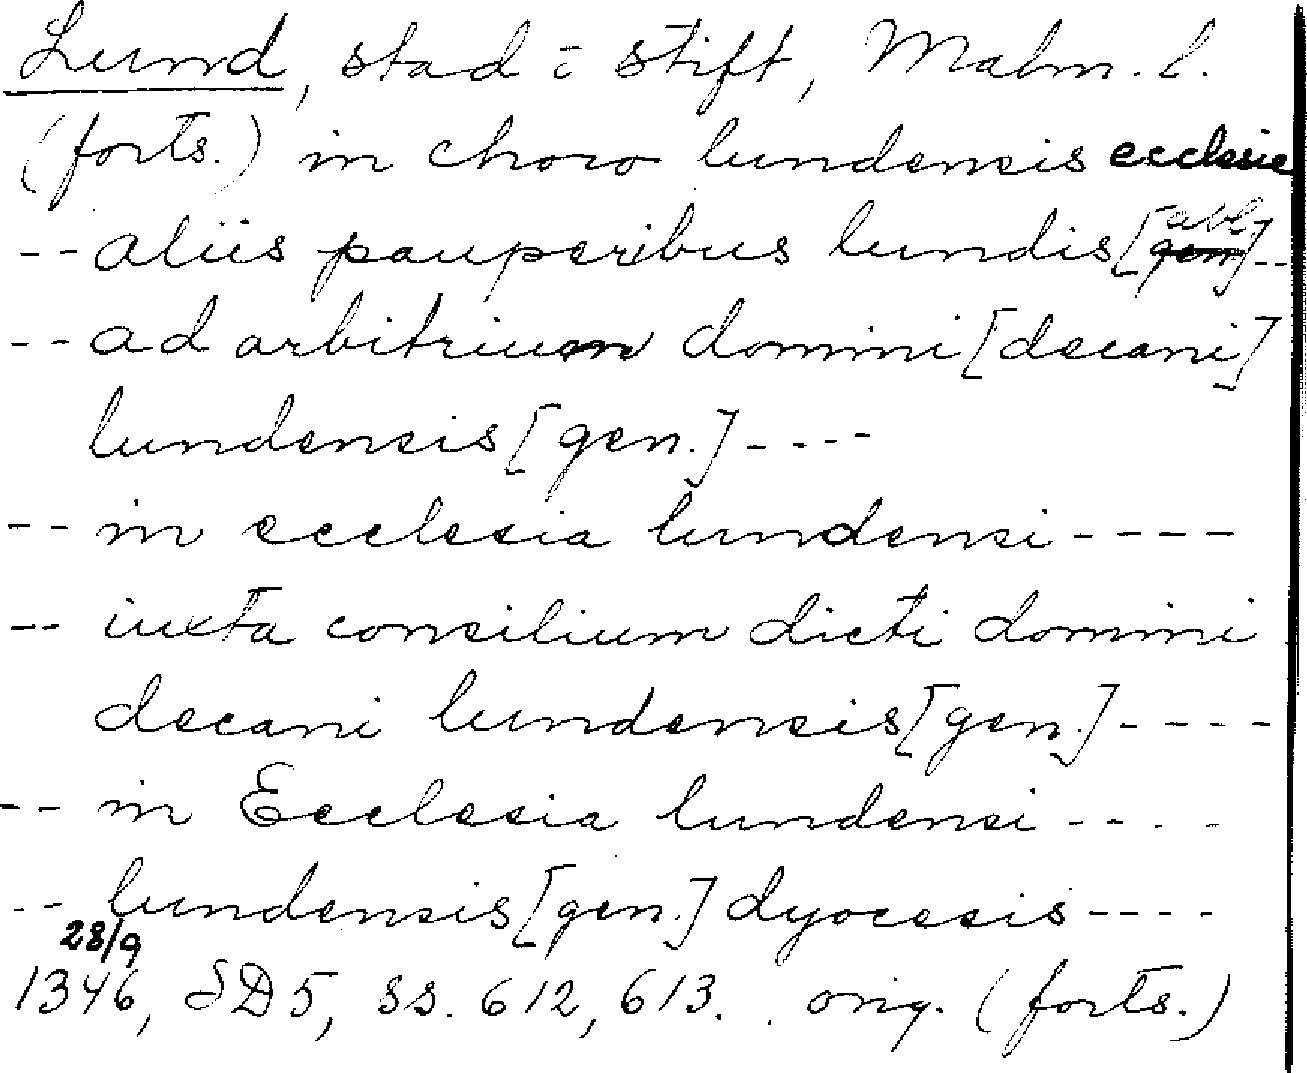 Lund, stad o stift, Malm. l.
(forts.) in choro lundensis ecclesie
-- aliis pauperibus lundis [abl.] --
-- ad arbitrium domini [decani]
lundensis [gen.] ----
-- in ecclesia lundensi ----
-- iuxta consilium dicti domini
decani lundensis [gen.] ----
-- in Ecclesia lundensi ----
-- lundensis [gen.] dyocesis ----
28/9
1346, SD 5, ss. 612, 613. orig. (forts.)